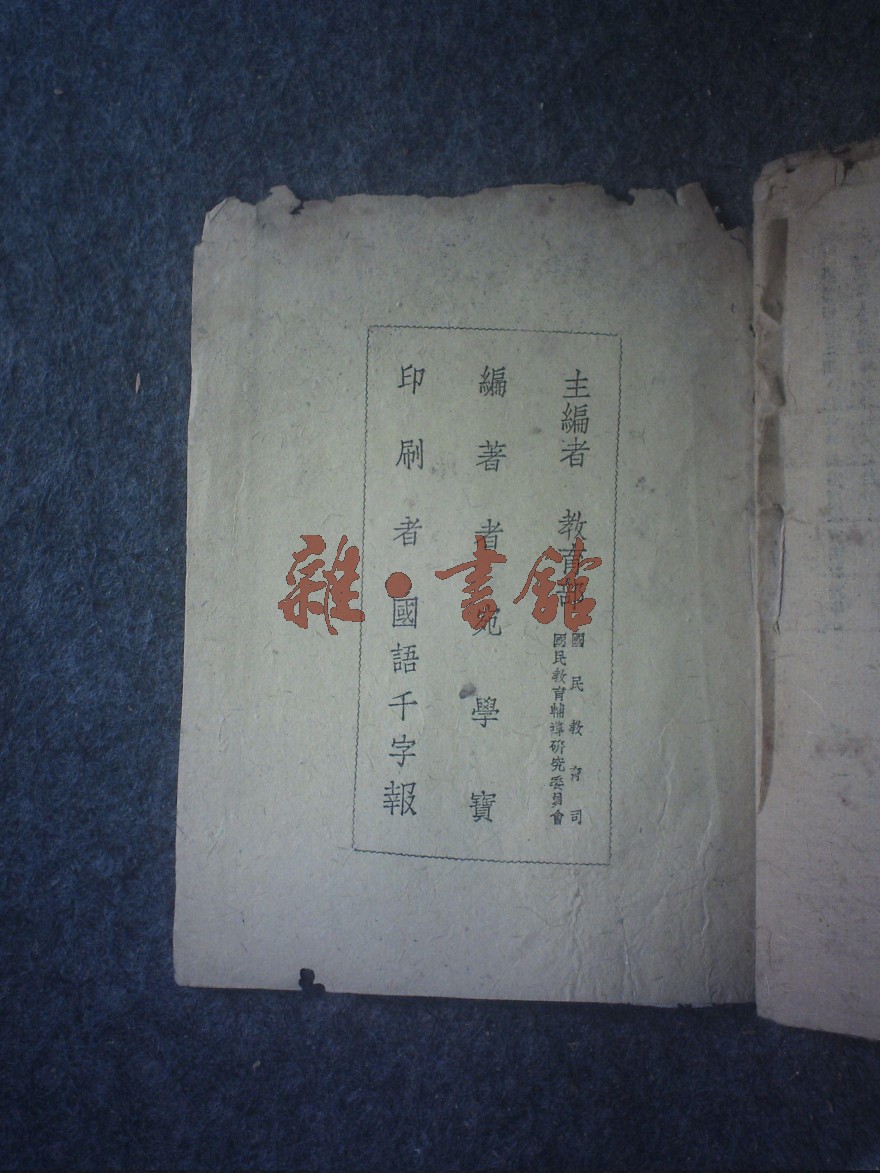 主編者 教育部 國民教育司
國民教育輔導研究委員會
編著者 宛學寶
印刷者 國語千字報
雜·書館